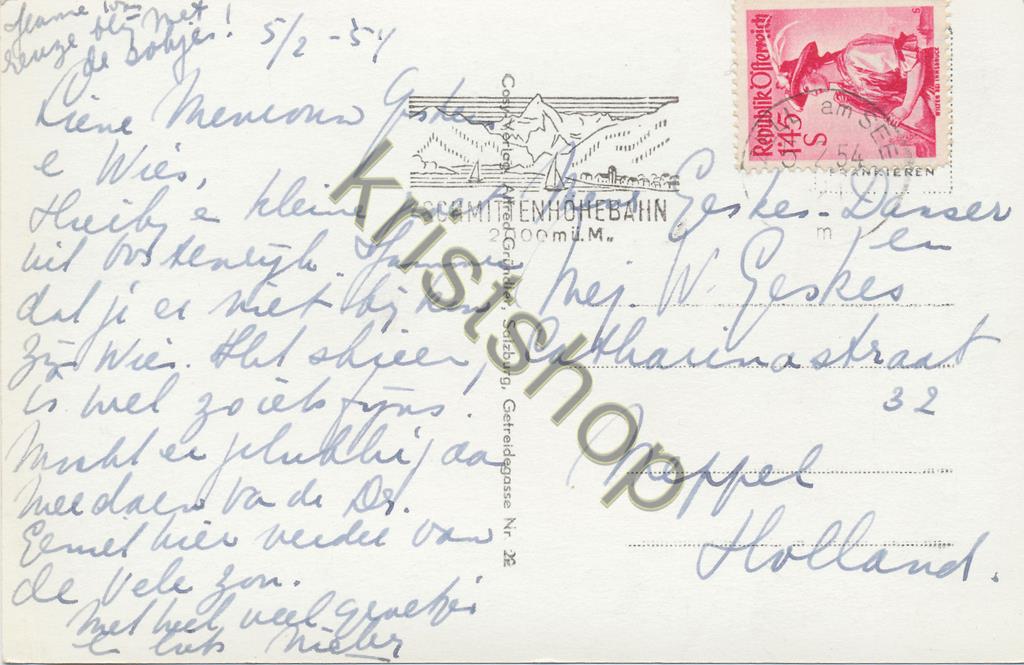 reuze blij met
de sokjes!
5/2 - 54
Lieve Mevrouw Geskes
e Wies,
Hierbij e kleine
uit Oostenrijk. Jammer
dat je er niet bij
zijn Wies. Het skieen,
is wel zoiets fijns!
Mocht er
meedoen va de Dr.
Geniet hier verder van
de vele zon.
Met heel veel groetjes
e
Cosy-Verlag Alfred Gründler, Salzburg, Getreidegasse Nr. 22
SCHMITTENHÖHEBAHN
2000 m ü. M.
Republik Österreich
1·45
S
am SEE
54
FRANKIEREN
m
Geskes-Danser
en
Mej. W. Geskes
Catharinastraat
32
Meppel
Holland.
kristshop